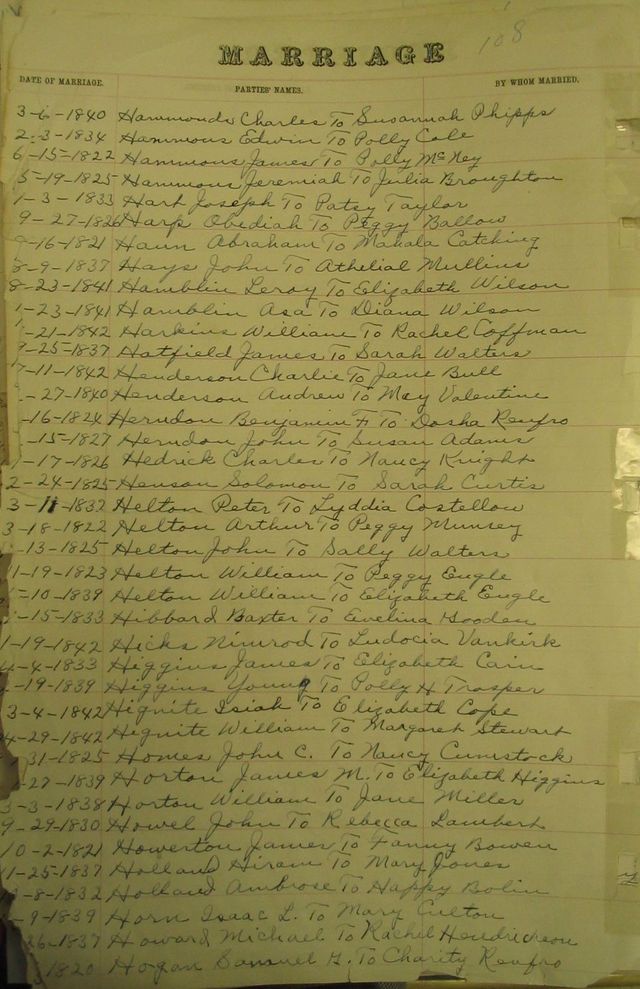 108
MARRIAGE
DATE OF MARRIAGE. PARTIES' NAMES. BY WHOM MARRIED.
3-6-1840 Hammonds Charles To Susannah Phipps
2-3-1834 Hammous Edwin To Polly Cole
6-15-1822 Hammous James To Polly McNey
5-19-1825 Hammous Jeremiah To Julia Broughton
1-3-1833 Hart Joseph To Patsy Taylor
9-27-1826 Harp Obediah To Peggy Ballow
-16-1821 Haun Abraham To Mahala Catching
8-9-1837 Hays John To Athelial Mullins
8-23-1841 Hamblin Leroy To Elizabeth Wilson
1-23-1841 Hamblin Asa To Diana Wilson
-21-1842 Harkins William To Rachel Coffman
-25-1837 Hatfield James To Sarah Walters
7-11-1842 Henderson Charlie To Jane Bull
-27-1840 Henderson Andrew To May Valentine
-16-1824 Herndon Benjamin F To Dosha Renfro
-15-1827 Herndon John To Susan Adams
1-17-1826 Hedrick Charles To Nancy Knight
2-24-1825 Henson Solomon To Sarah Curtis
3-11-1837 Helton Peter To Lyddia Costellow
3-18-1822 Helton Arthur To Peggy Munsey
-13-1825 Helton John To Sally Walters
1-19-1823 Helton William To Peggy Eugle
-10-1839 Helton William To Elizabeth Eugle
-15-1833 Hibbard Baxter To Evelina Gooden
1-19-1842 Hicks Nimrod To Ludocia Vankirk
4-4-1833 Higgins James To Elizabeth Cain
-19-1839 Higgins Young To Polly H Trosper
3-4-1842 Hignite Isiah To Elizabeth Cope
4-29-1842 Hignite William To Margaret Stewart
31-1825 Homes John C. To Nancy Cumstock
-27-1839 Horton James M. To Elizabeth Higgins
3-3-1838 Horton William To Jane Miller
9-29-1830 Howel John To Rebecca Lambert
10-2-1821 Howerton James To Fanny Bowen
1-25-1837 Holland Hiram To Mary Jones
-8-1832 Holland Ambrose To Happy Bolin
-9-1839 Horn Isaac L. To Mary Culton
26-1837 Howard Michael To Rachel Hendrickson
1820 Hogan Samuel G. To Charity Renfro